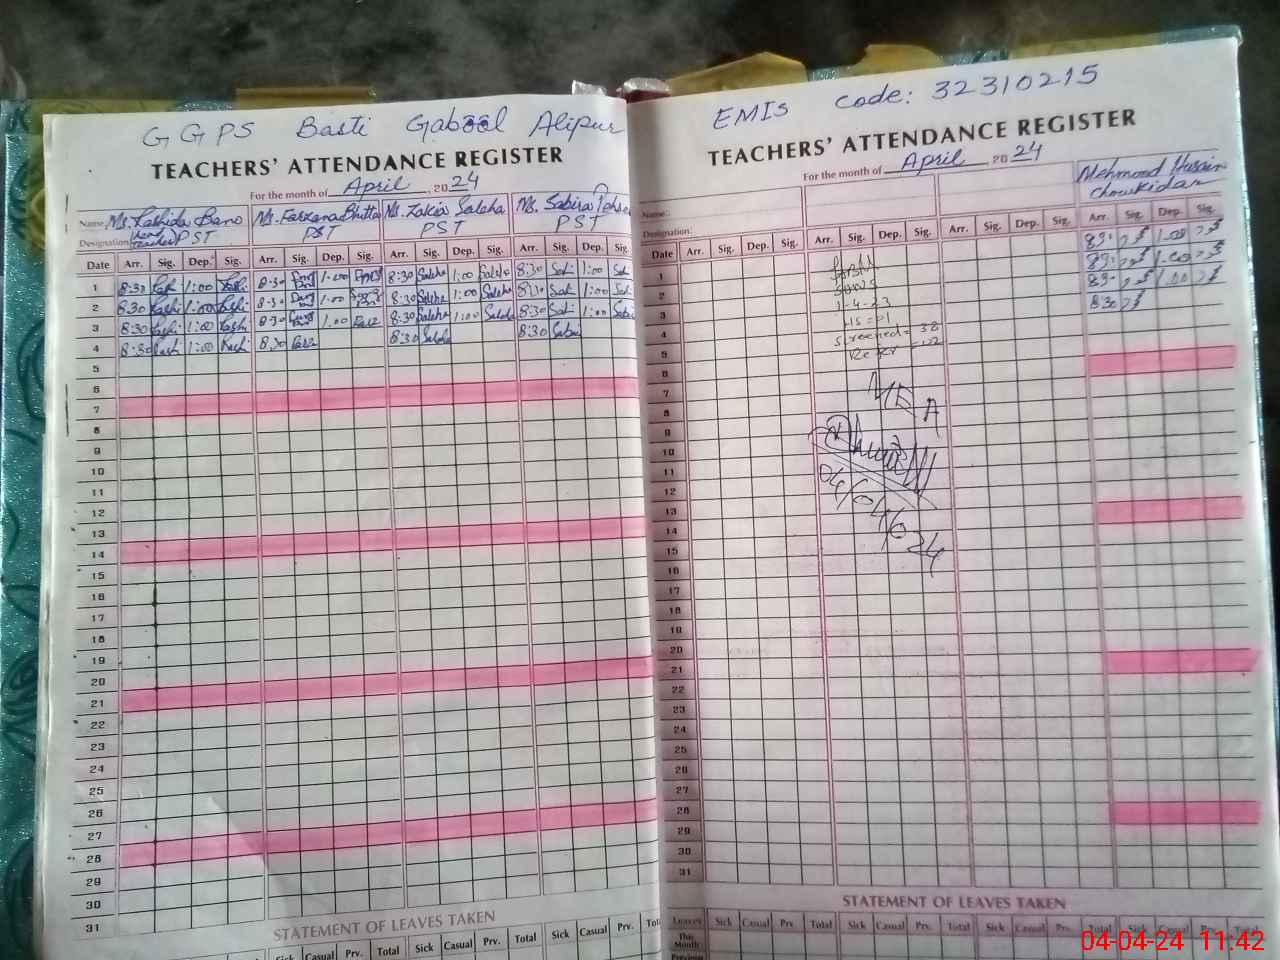 GGPS Basti Gabool Alipur
TEACHERS' ATTENDANCE REGISTER
For the month of April, 2024
Name: Ms. Rashida Bano Ms. Farzana Bhutta Ms. Zakia Saleha Ms. Sabira
Designation: Head Teacher PST PST PST PST
Date Arr. Sig. Dep. Sig. Arr. Sig. Dep. Sig. Arr. Sig. Dep. Sig. Arr. Sig. Dep. Sig.
1 8:30 Rashi 1:00 Rashi 8:30 1:00 8:30 Saleha 1:00 Saleha 8:30 Sabi 1:00 Sabi
2 8:30 Rashi 1:00 Rashi 8:30 1:00 8:30 Saleha 1:00 Saleha 8:30 Sabi 1:00 Sabi
3 8:30 Rashi 1:00 Rashi 8:30 1:00 Farz 8:30 Saleha 1:00 Saleha 8:30 Sabi 1:00 Sabi
4 8:30 Rashi 1:00 Rashi 8:30 Farz 8:30 Saleha 8:30 Sabi
5
6
7
8
9
10
11
12
13
14
15
16
17
18
19
20
21
22
23
24
25
26
27
28
29
30
31
STATEMENT OF LEAVES TAKEN
Sick Casual Prv. Total Sick Casual Prv. Total Sick Casual Prv. Total
EMIS Code: 32310215
TEACHERS' ATTENDANCE REGISTER
For the month of April, 2024
Name: Mehmood Husain
Designation: Chowkidar
Date Arr. Sig. Dep. Sig. Arr. Sig. Dep. Sig. Arr. Sig. Dep. Sig. Arr. Sig. Dep. Sig.
1
2
3
4
5
6
7
8
9
10
11
12
13
14
15
16
17
18
19
20
21
22
23
24
25
26
27
28
29
30
31
1-4-23
screened = 38
MEA
04/04/024
STATEMENT OF LEAVES TAKEN
Leaves Sick Casual Prv. Total Sick Casual Prv. Total Sick Casual Prv. Total Sick Casual Prv. Total
This Month
Previous
04-04-24 11:42